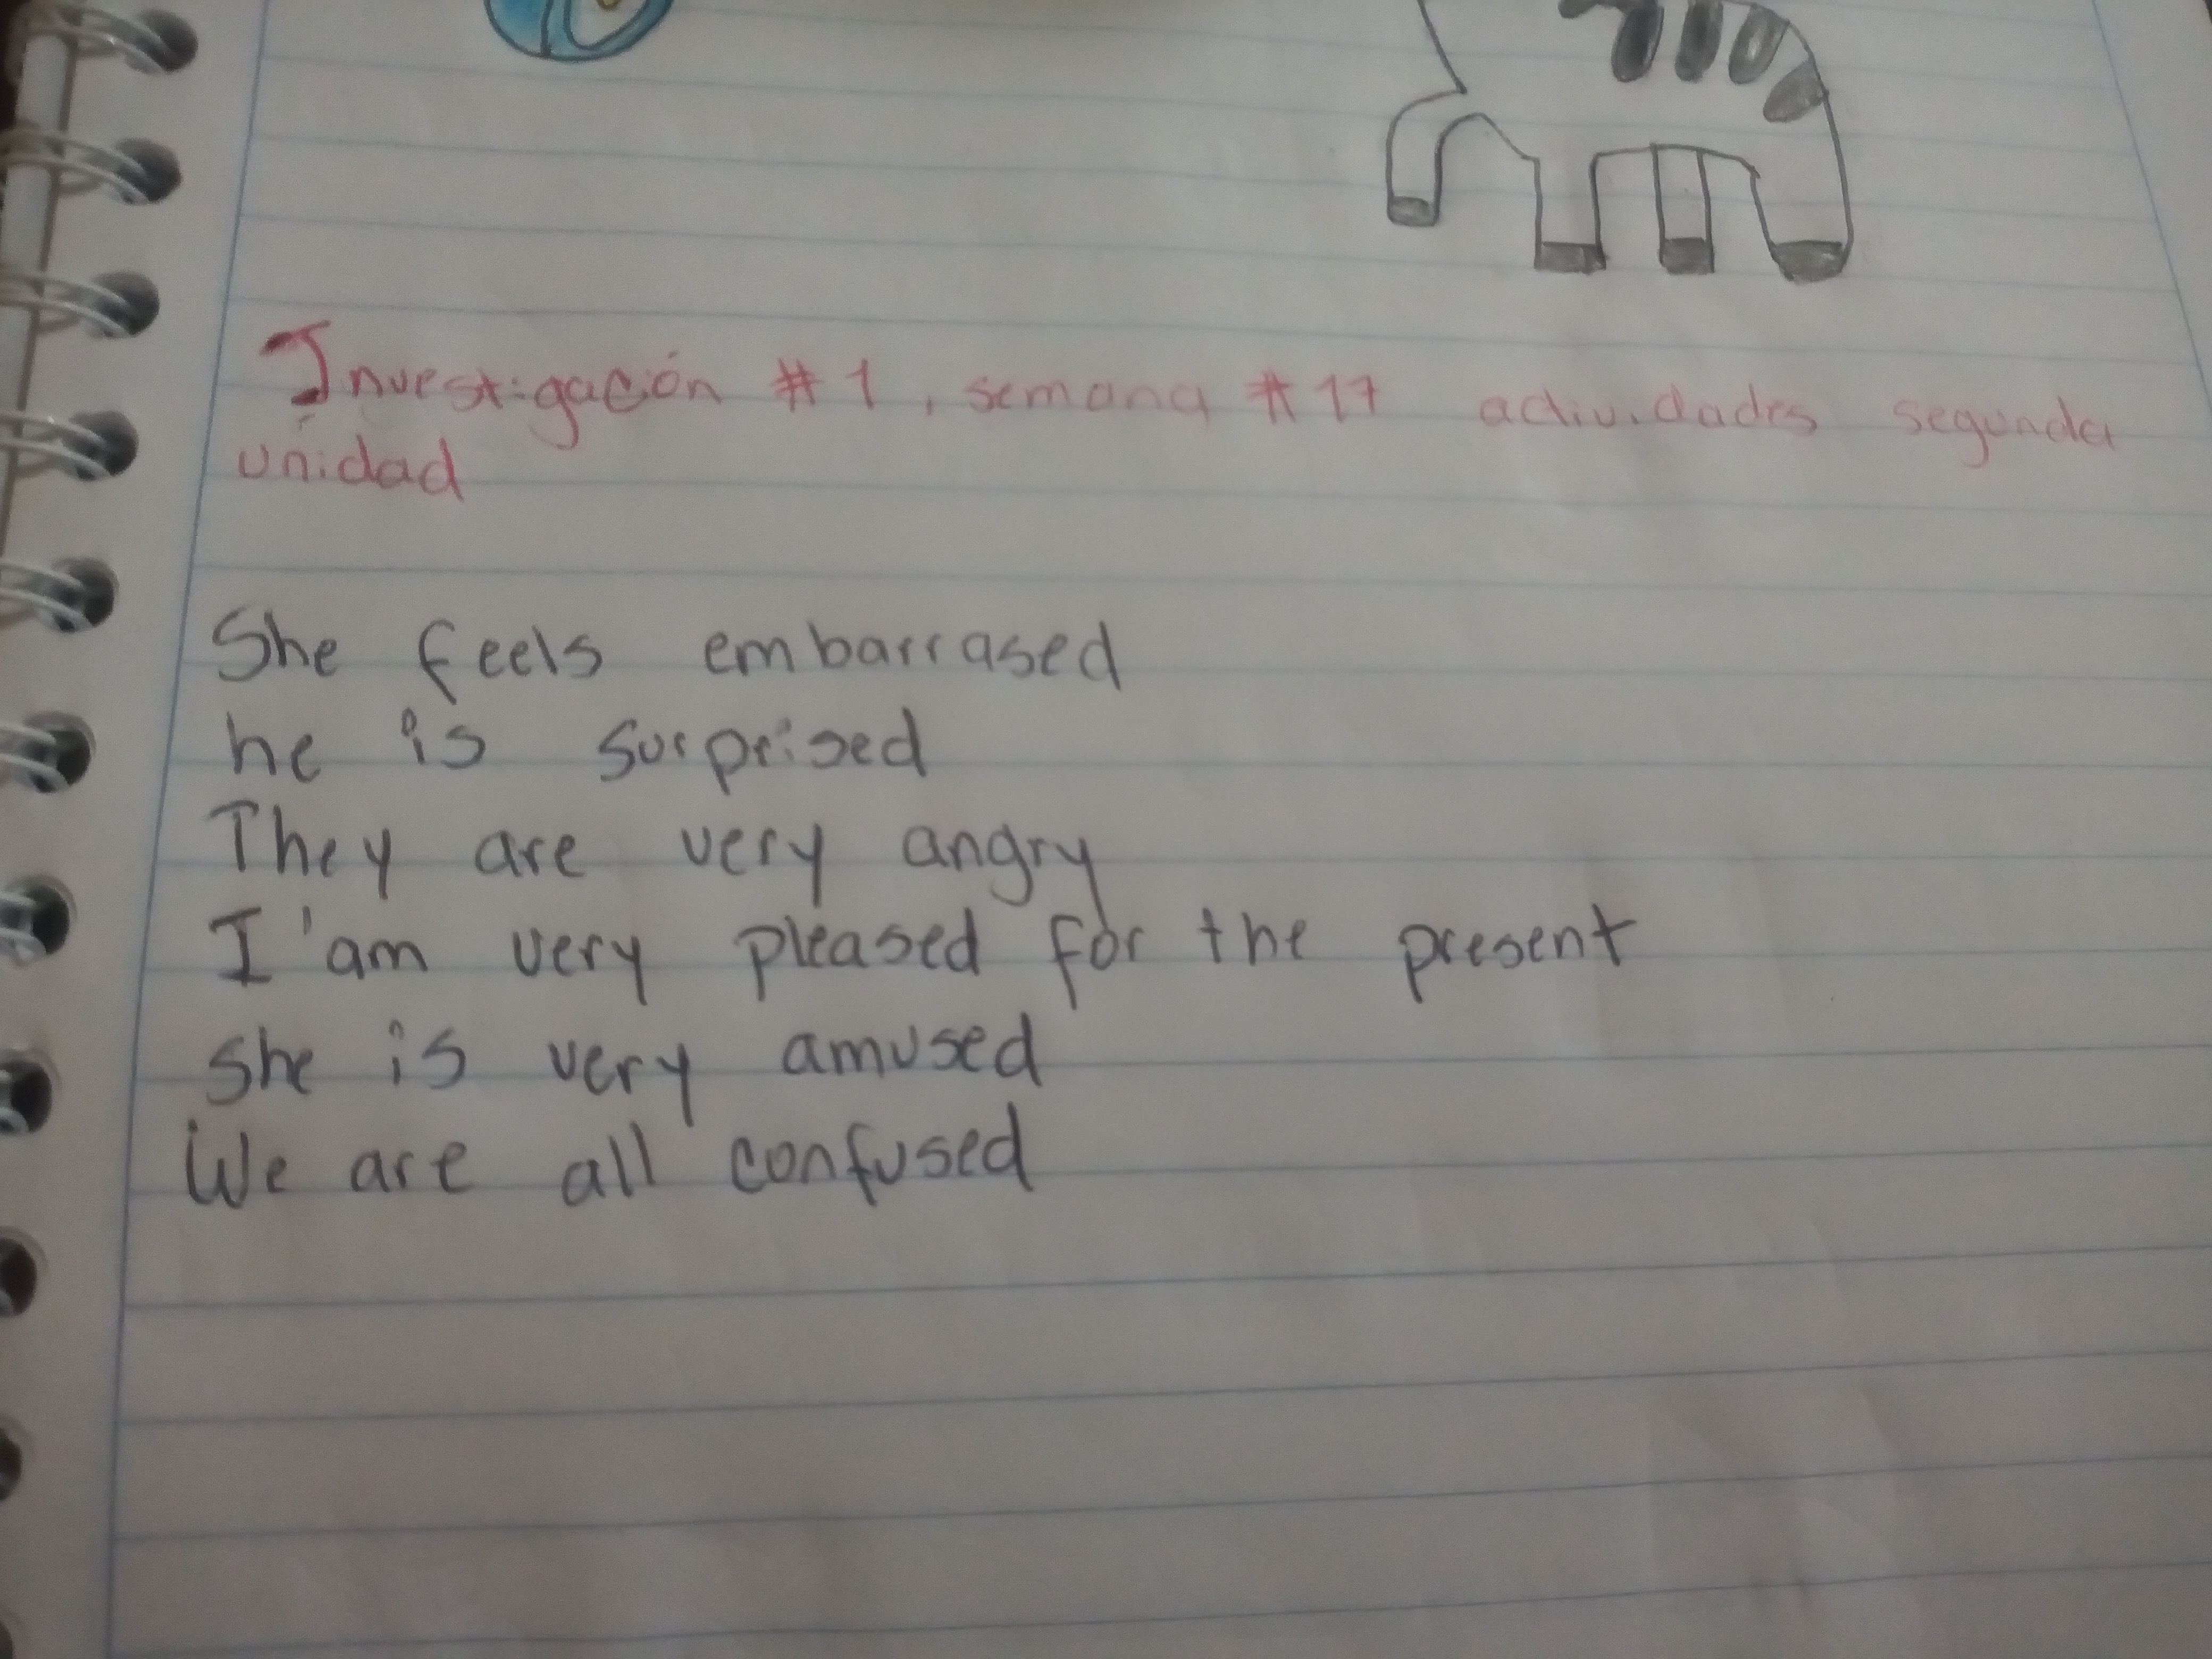 Investigación #1, semana #17 actividades segunda
unidad
She feels embarrased
he is surprised
They are very angry
I'am very pleased for the present
she is very amused
We are all confused